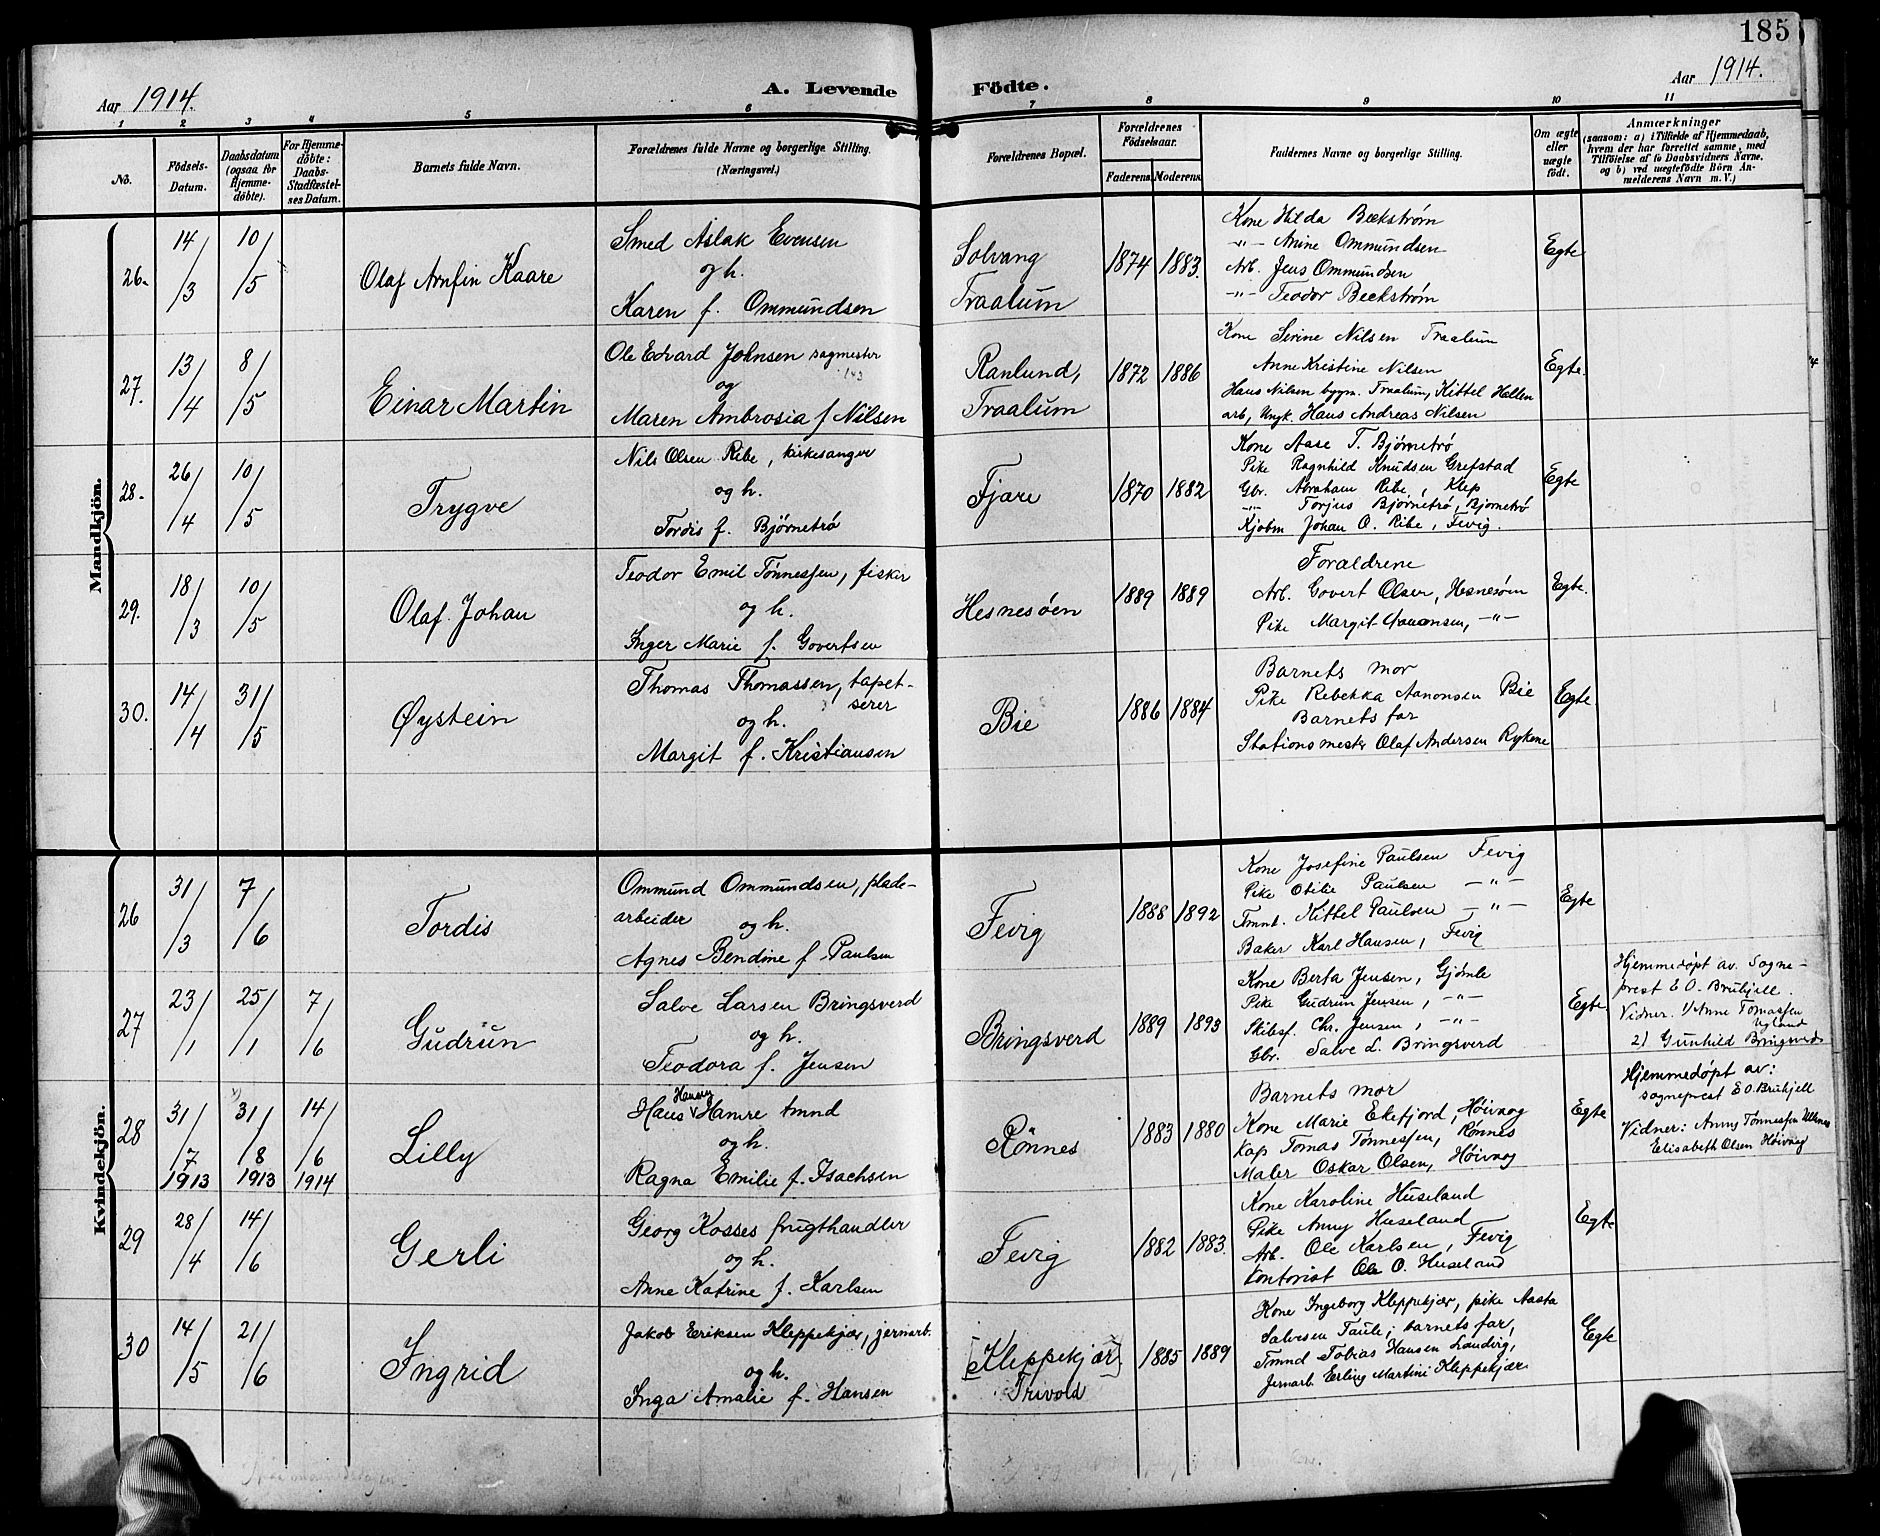 185
Aar 1914.
A. Levende Födte.
Aar 1914.
1 2 3 4 5 6 7 8 9 10 11
No.
Födsels-Datum.
Daabsdatum (ogsaa for Hjemme-døbte).
For Hjemme-døbte: Daabs-Stadfæstel-ses Datum.
Barnets fulde Navn.
Forældrenes fulde Navne og borgerlige Stilling.
(Næringsvei.)
Forældrenes Bopæl.
Forældrenes Födselsaar.
Faderens. Moderens.
Faddernes Navne og borgerlige Stilling.
Om ægte eller uægte født.
Anmærkninger
(saasom: a) i Tilfælde af Hjemmedaab,
hvem der har forrettet samme, med
Tilföielse af to Daabsvidners Navne,
og b) ved uægtefödte Börn An-
melderens Navn m. V.)
Mandkjön.
26. 14/3 10/5 Olaf Arnfin Kaare
Smed Aslak Evensen
og h.
Karen f. Ommundsen
Solvang
Traalum
1874 1883.
Kone Hilda Beckstrøm
-"- Anine Ommundsen
Arb. Jens Ommundsen
-"- Teodor Beckstrøm
Egte
27. 13/4 8/5 Einar Martin
Ole Edvard Johnsen sagmester
og
Maren Ambrosia f Nilsen
Ranlund,
Traalum
1872 1886
Kone Serine Nilsen Traalum
Anne Kristine Nilsen
Hans Nilsen bygm. Traalum, Kittel Hallen
arb, Ungk. Hans Andreas Nilsen
Egte.
28. 26/4 10/5 Trygve
Nils Olsen Ribe, kirkesanger
og h.
Tordis f. Bjørnetrø
Fjære
1870 1882
Kone Aase T. Bjørnetrø
Pike Ragnhild Knudsen Grefstad
Gbr. Abraham Ribe, Klep
-"- Torjus Bjørnetrø, Bjørnetrø
Kjøbm Johan O. Ribe, Fevig.
Egte
29. 18/3 10/5 Olaf Johan
Teodor Emil Tønnessen, fisker
og h.
Inger Marie f. Govertsen
Hesnesøen
1889 1889
Forældrene
Arb. Govert Olsen, Hesnesøen
Pike Margit Aanonsen, -"-
Egte.
30. 14/4 31/5 Øystein
Thomas Thomassen, tapet-
serer
og h.
Margit f. Kristiansen
Bie
1886 1884
Barnets mor
Pike Rebekka Aanonsen Bie
Barnets far
Stationsmester Olaf Andersen Rykene
Egte.
Kvindekjön.
26 31/3 7/6 Tordis
Ommund Ommundsen, plade-
arbeider og h.
Agnes Bendine f. Paulsen
Fevig
1888 1892
Kone Josefine Paulsen Fevig
Pike Otilie Paulsen -"-
Tmnt. Kittel Paulsen -"-
Baker Karl Hansen, Fevig
Egte
27 23/1 25/1 7/6 Gudrun
Salve Larsen Bringsverd
og h.
Teodora f. Jensen
Bringsverd
1889 1893
Kone Berta Jensen, Gjømle
Pike Gudrun Jensen, -"-
Skibsf. Chr. Jensen, -"-
Gbr. Salve L. Bringsverd
Egte.
Hjemmedøpt av Sogne-
prest E O. Bruhjell.
Vidner. 1/ Anne Tomassen
Ugland
2) Gunhild Bringsverd
28 31/7 1913 31/8 1913 14/6 1914 Lilly
Hans Hansej Hamre tmnd
og h.
Ragna Emilie f. Isachsen
Rønnes
1883 1880
Barnets mor
Kone Marie Ekefjord, Høivaag
Kap Tomas Tønnessen, Rønnes
Maler Oskar Olsen, Høivaag
Egte
Hjemmedøpt av:
sogneprest E O. Bruhjell
Vidner: Anny Tønnessen
Elisabeth Olsen Høivaag
29 28/4 14/6 Gerli
Georg Kosses frugthandler
og h.
Anne Katrine f. Karlsen
Fevig
1882 1883.
Kone Karoline Huseland
Pike Anny Huseland
Arb. Ole Karlsen, Fevig
Kontorist Ole O. Huseland
Egte
30 14/5 21/6 Ingrid
Jakob Eriksen Kleppekjær, jernarb.
og h.
Inga Amalie f. Hansen
[Kleppekjær]
Trivold
1885 1889
Kone Ingeborg Kleppekjær, pike Aasta
Salvesen Taule; barnets far,
Tmnd Tobias Hansen Landvig,
Jernarb Erling Martini Kleppekjær
Egte